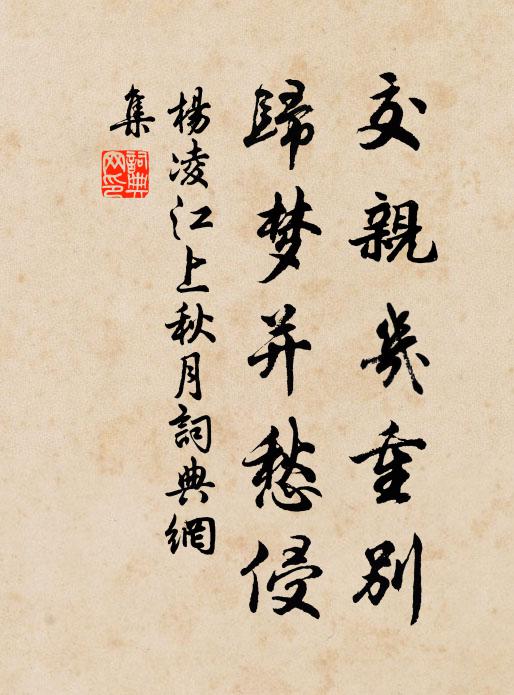 交親幾重别
歸梦并愁侵
楊凌江上秋月詞典網
集
詞典
网印